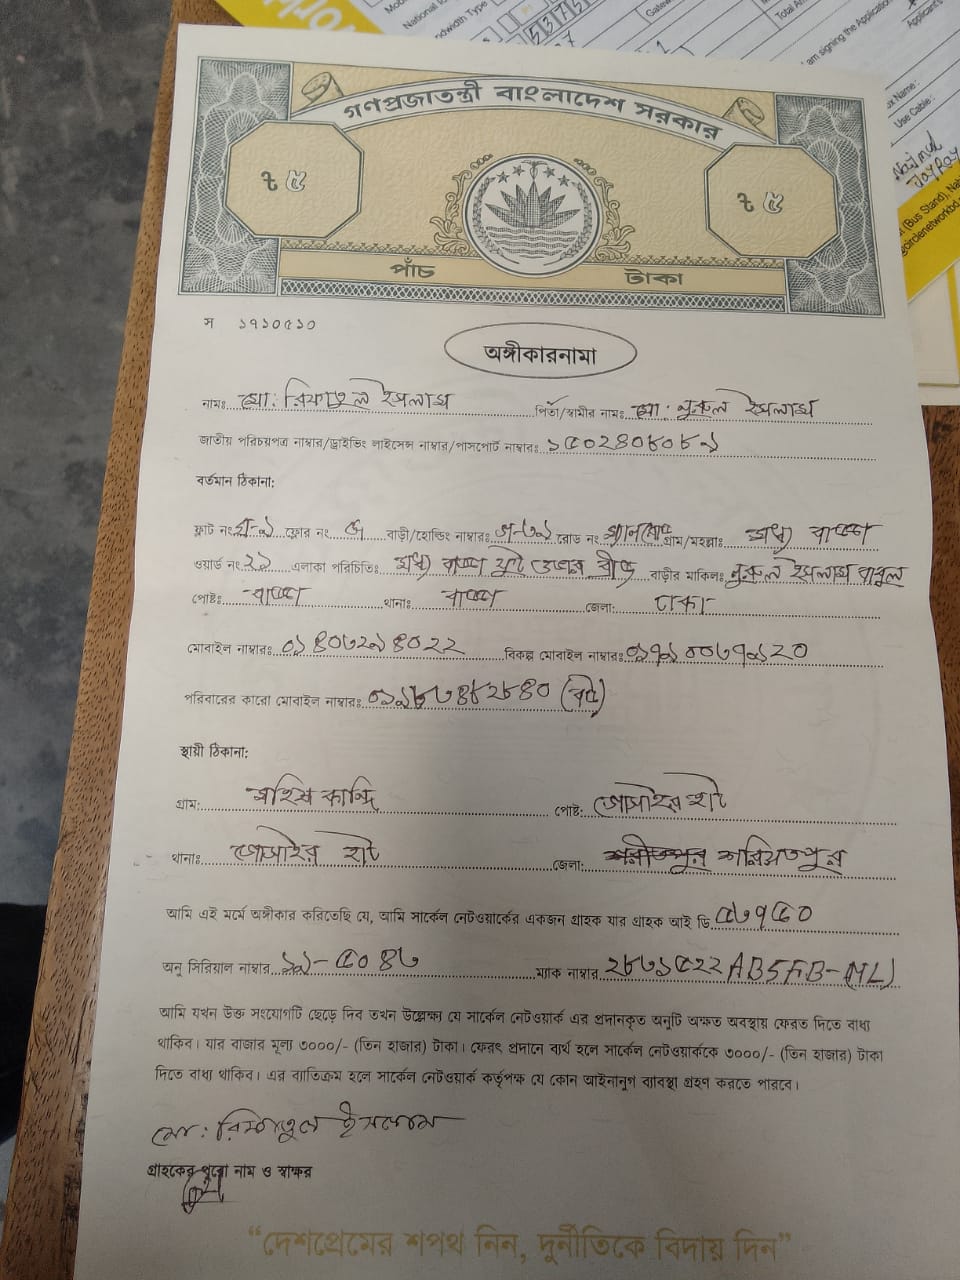 গণপ্রজাতন্ত্রী বাংলাদেশ সরকার
৳ ৫ ৳ ৫
পাঁচ টাকা
স ১৭১০৫১০
অঙ্গীকারনামা
নামঃ মো: রিফাতুল ইসলাম পিতা/স্বামীর নামঃ মো: নুরুল ইসলাম
জাতীয় পরিচয়পত্র নাম্বার/ড্রাইভিং লাইসেন্স নাম্বার/পাসপোর্ট নাম্বারঃ ১৫০২৪০৮০৮৯
বর্তমান ঠিকানা:
ফ্লাট নং ফ্লোর নং বাড়ী/হোল্ডিং নাম্বারঃ রোড নং গ্রাম/মহল্লাঃ মধ্য বাড্ডা
ওয়ার্ড নং ২১ এলাকা পরিচিতিঃ মধ্য বাড্ডা বাড়ীর মালিকঃ নুরুল ইসলাম বাবুল
পোষ্টঃ বাড্ডা থানাঃ বাড্ডা জেলা: ঢাকা
মোবাইল নাম্বারঃ বিকল্প মোবাইল নাম্বারঃ
পরিবারের কারো মোবাইল নাম্বারঃ
স্থায়ী ঠিকানা:
গ্রাম: মহিষ কান্দি পোষ্ট: গোসাইর হাট
থানাঃ গোসাইর হাট জেলা: শরিয়তপুর
আমি এই মর্মে অঙ্গীকার করিতেছি যে, আমি সার্কেল নেটওয়ার্কের একজন গ্রাহক যার গ্রাহক আই ডি ৫৬৭৫০
অনু সিরিয়াল নাম্বার ১৯-৫০৪৬ ম্যাক নাম্বার
আমি যখন উক্ত সংযোগটি ছেড়ে দিব তখন উল্লেক্ষ্য যে সার্কেল নেটওয়ার্ক এর প্রদানকৃত অনুটি অক্ষত অবস্থায় ফেরত দিতে বাধ্য
থাকিব। যার বাজার মূল্য ৩০০০/- (তিন হাজার) টাকা। ফেরৎ প্রদানে ব্যর্থ হলে সার্কেল নেটওয়ার্ককে ৩০০০/- (তিন হাজার) টাকা
দিতে বাধ্য থাকিব। এর ব্যতিক্রম হলে সার্কেল নেটওয়ার্ক কর্তৃপক্ষ যে কোন আইনানুগ ব্যবিস্থা গ্রহণ করতে পারবে।
মো: রিফাতুল ইসলাম
গ্রাহকের পুরো নাম ও স্বাক্ষর
“দেশপ্রেমের শপথ নিন, দুর্নীতিকে বিদায় দিন”